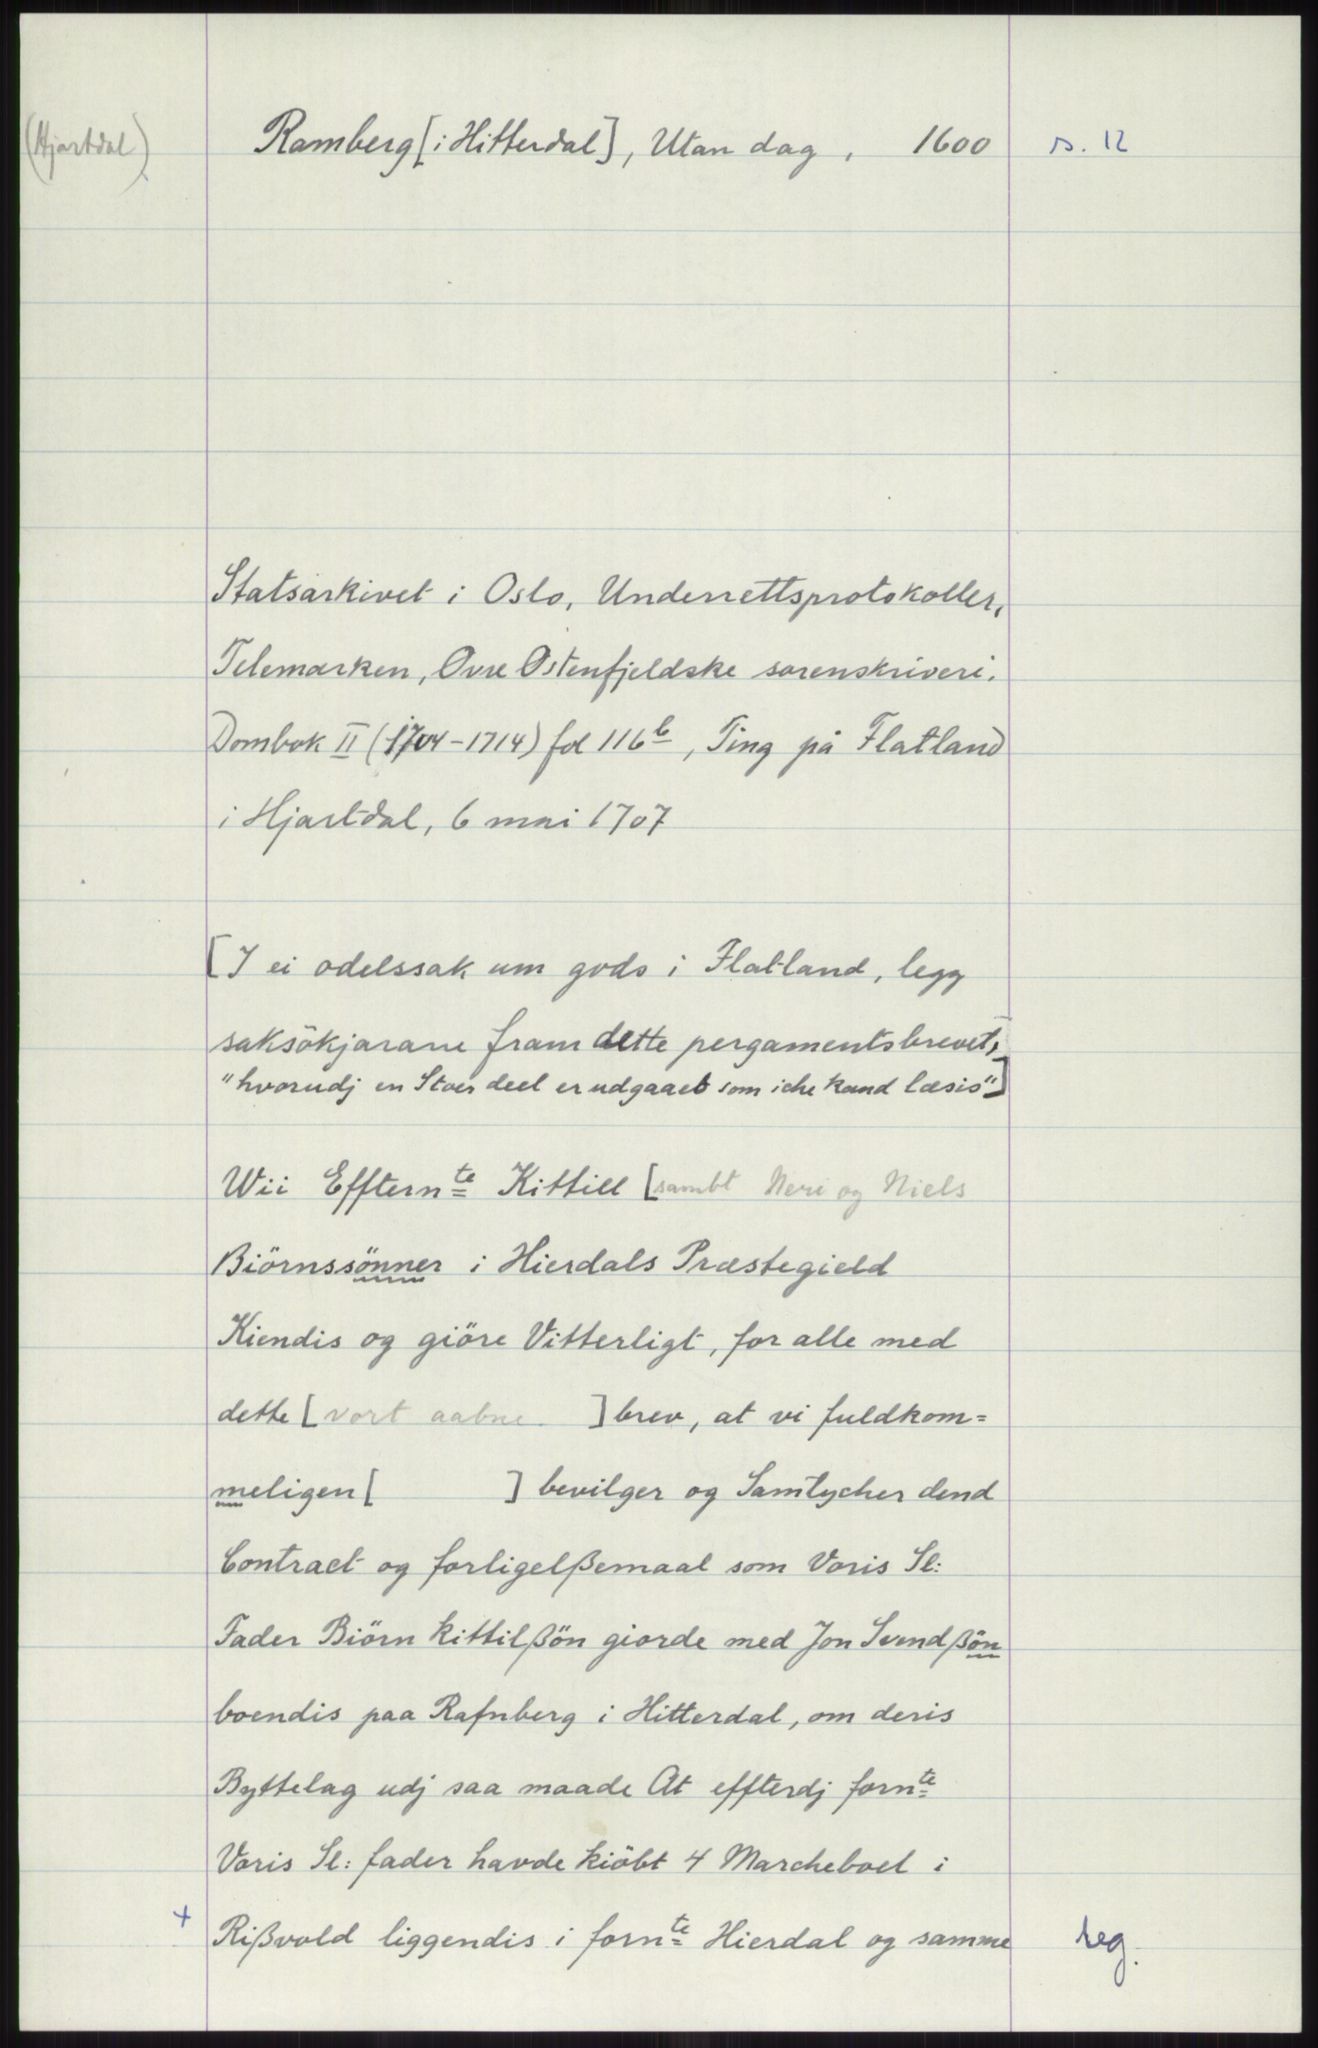 (Hjartdal)
Ramberg [i Hitterdal], Utan dag, 1600
s. 12
Statsarkivet i Oslo, Underrettsprotokoller,
Telemarken, Øvre Østenfjeldske sorenskriveri.
Dombok II (1704-1714) fol 116b, Ting på Flatland
i Hjartdal, 6 mai 1707
[I ei odelssak um gods i Flatland, legg
saksökjarane fram dette pergamentsbrevet,
"hvorudj en Stoer deel er udgaaet som iche kand læsis"]
Wii Efftern te Kittill [sambt Neri og Niels
Biörnssönner i Hierdals Præstegield
Kiendis og giöre Vitterligt, for alle med
dette [vort aabne ] brev, at vi fuldkom=
meligen [ ] bevilger og Samtycher dend
Contract og forligelßemaal som Voris Sl:
Fader Biörn kittilßön giorde med Jon Svendßön
boendis paa Rafnberg i Hitterdal, om deris
Byttelag udj saa maade At effterdj forn te
Voris Sl: fader havde kiöbt 4 Marcheboel i
+ Rißvold liggendis i forn te Hierdal og samme
reg.